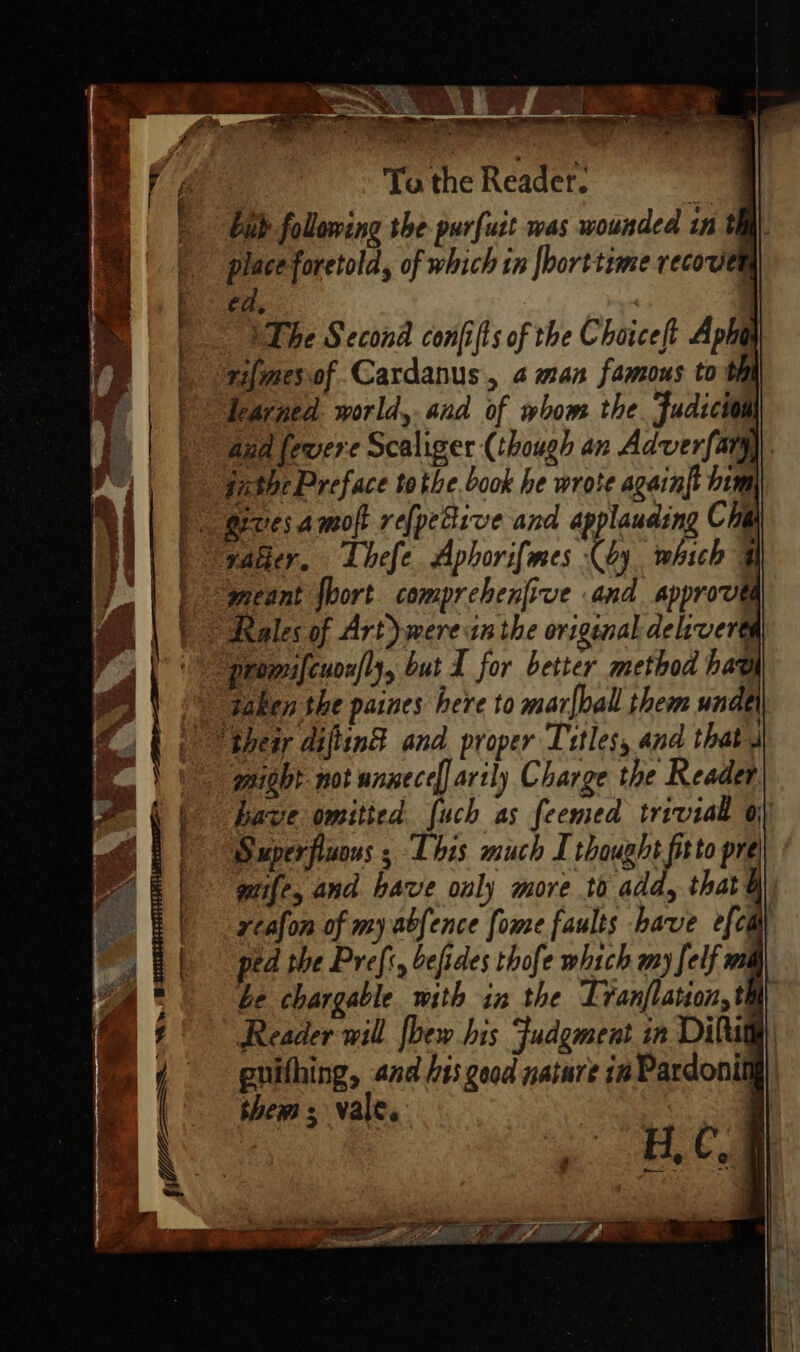 To the Reader.
but following the purſuit was wounded in
place foretold, of which in ſhort time recover
ed.
The Second conſiſts of the Choiceſt Apho
riſmes of Cardanus, a man famous to
learned world, and of whom the Judiciou
and ſevere Scaliger (though an Adverſary)
in the Preface to the book he wrote againſt him
gives a moſt reſpective and applauding Cha
racter. Theſe Aphoriſmes (by which
meant ſhort comprehenſive and approved
Rules of Art) were in the original delivered
promiſcuouſly, but I for better method have
taken the paines here to marſhall them under
their diſtinct and proper Titles, and that I
might not unneceſſarily Charge the Reader
have omitted ſuch as ſeemed triviall or
Superfluous; This much I thought fit to pre
miſe, and have only more to add, that
reaſon of my abſence ſome faults have eſca
ped the Preſs, beſides thoſe which my ſelf
be chargable with in the Tranſlation,
Reader will ſhew his Judgment in Diſtin
guiſhing, and his good nature in Pardoning
them; vale.
H. C.